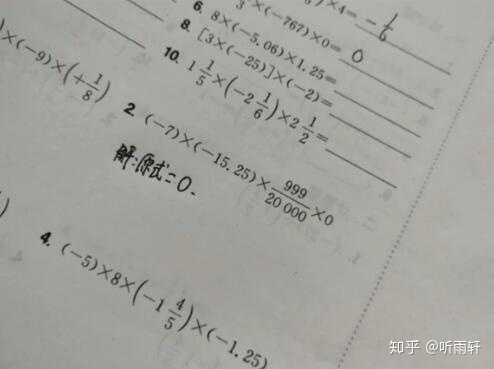 )×4= -1/6
6. 3×(-767)×0= 0
8. 8×(-5.06)×1.25=
10. [3×(-25)]×(-2)=
1 1/5×(-2 1/6)×2 1/2=
)×(-9)×(+1/8)
2. (-7)×(-15.25)×999/20 000×0
解:原式=0.
4. (-5)×8×(-1 4/5)×(-1.25)
知乎 @听雨轩